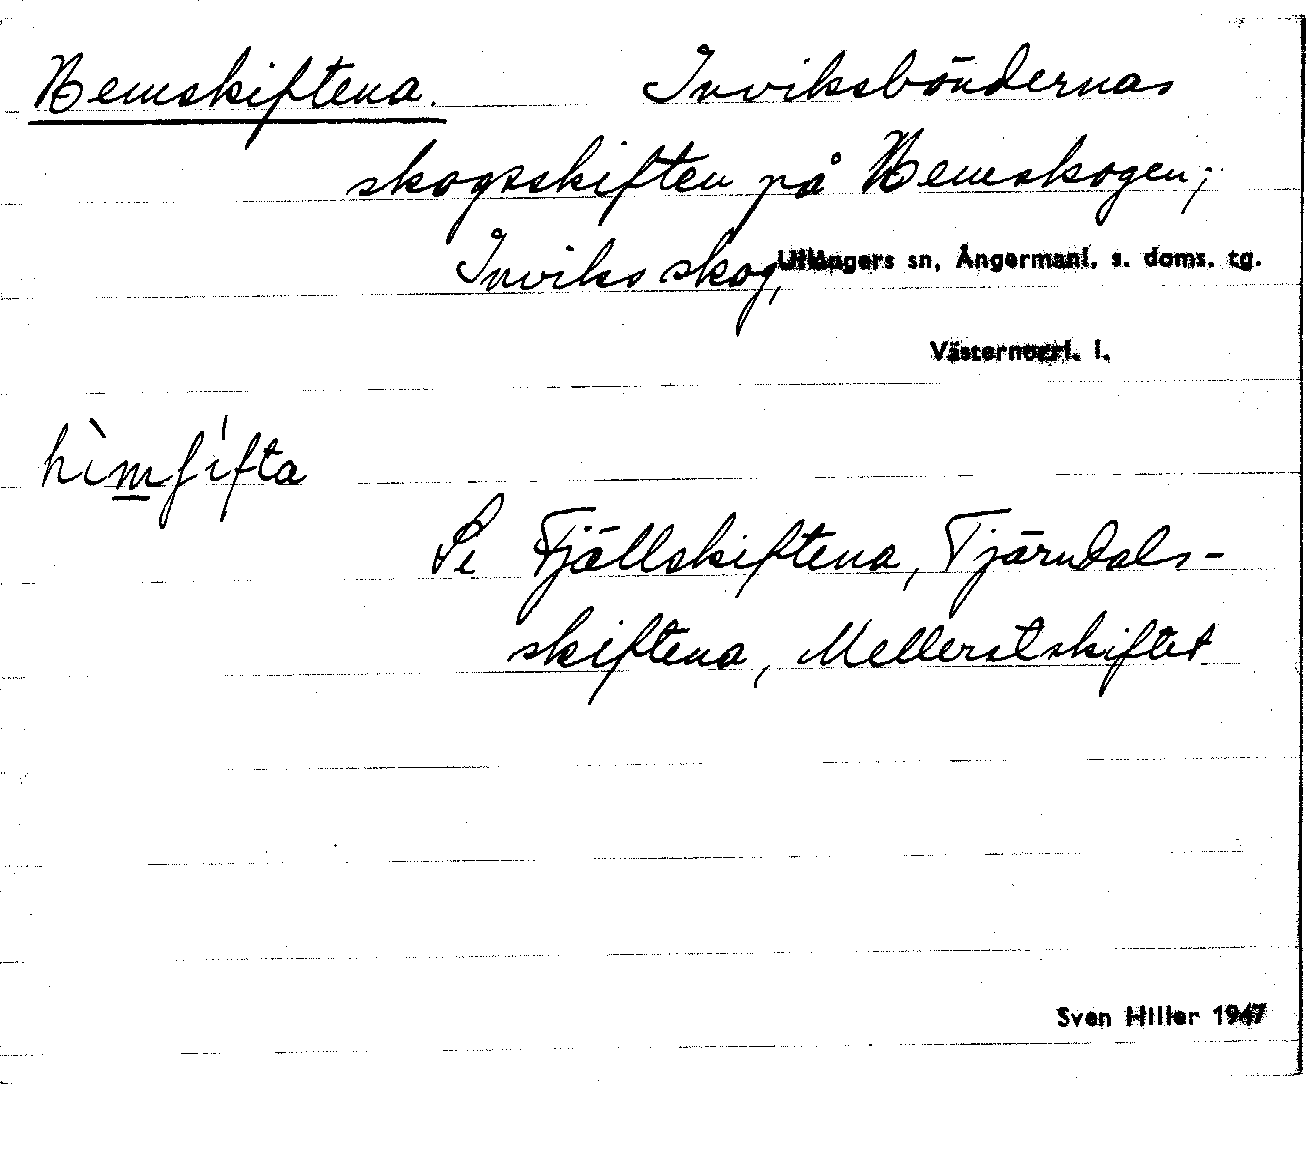 Hemskiftena. Inviksböndernas
skogsskiften på Hemskogen;
Inviks skog, Ullångers sn, Ångermanl. s. doms. tg.
Västernorrl. l.
hìmʃífta
Se Fjällskiftena, Tjärndals-
skiftena, Mellerstskiftet
Sven Hiller 1947